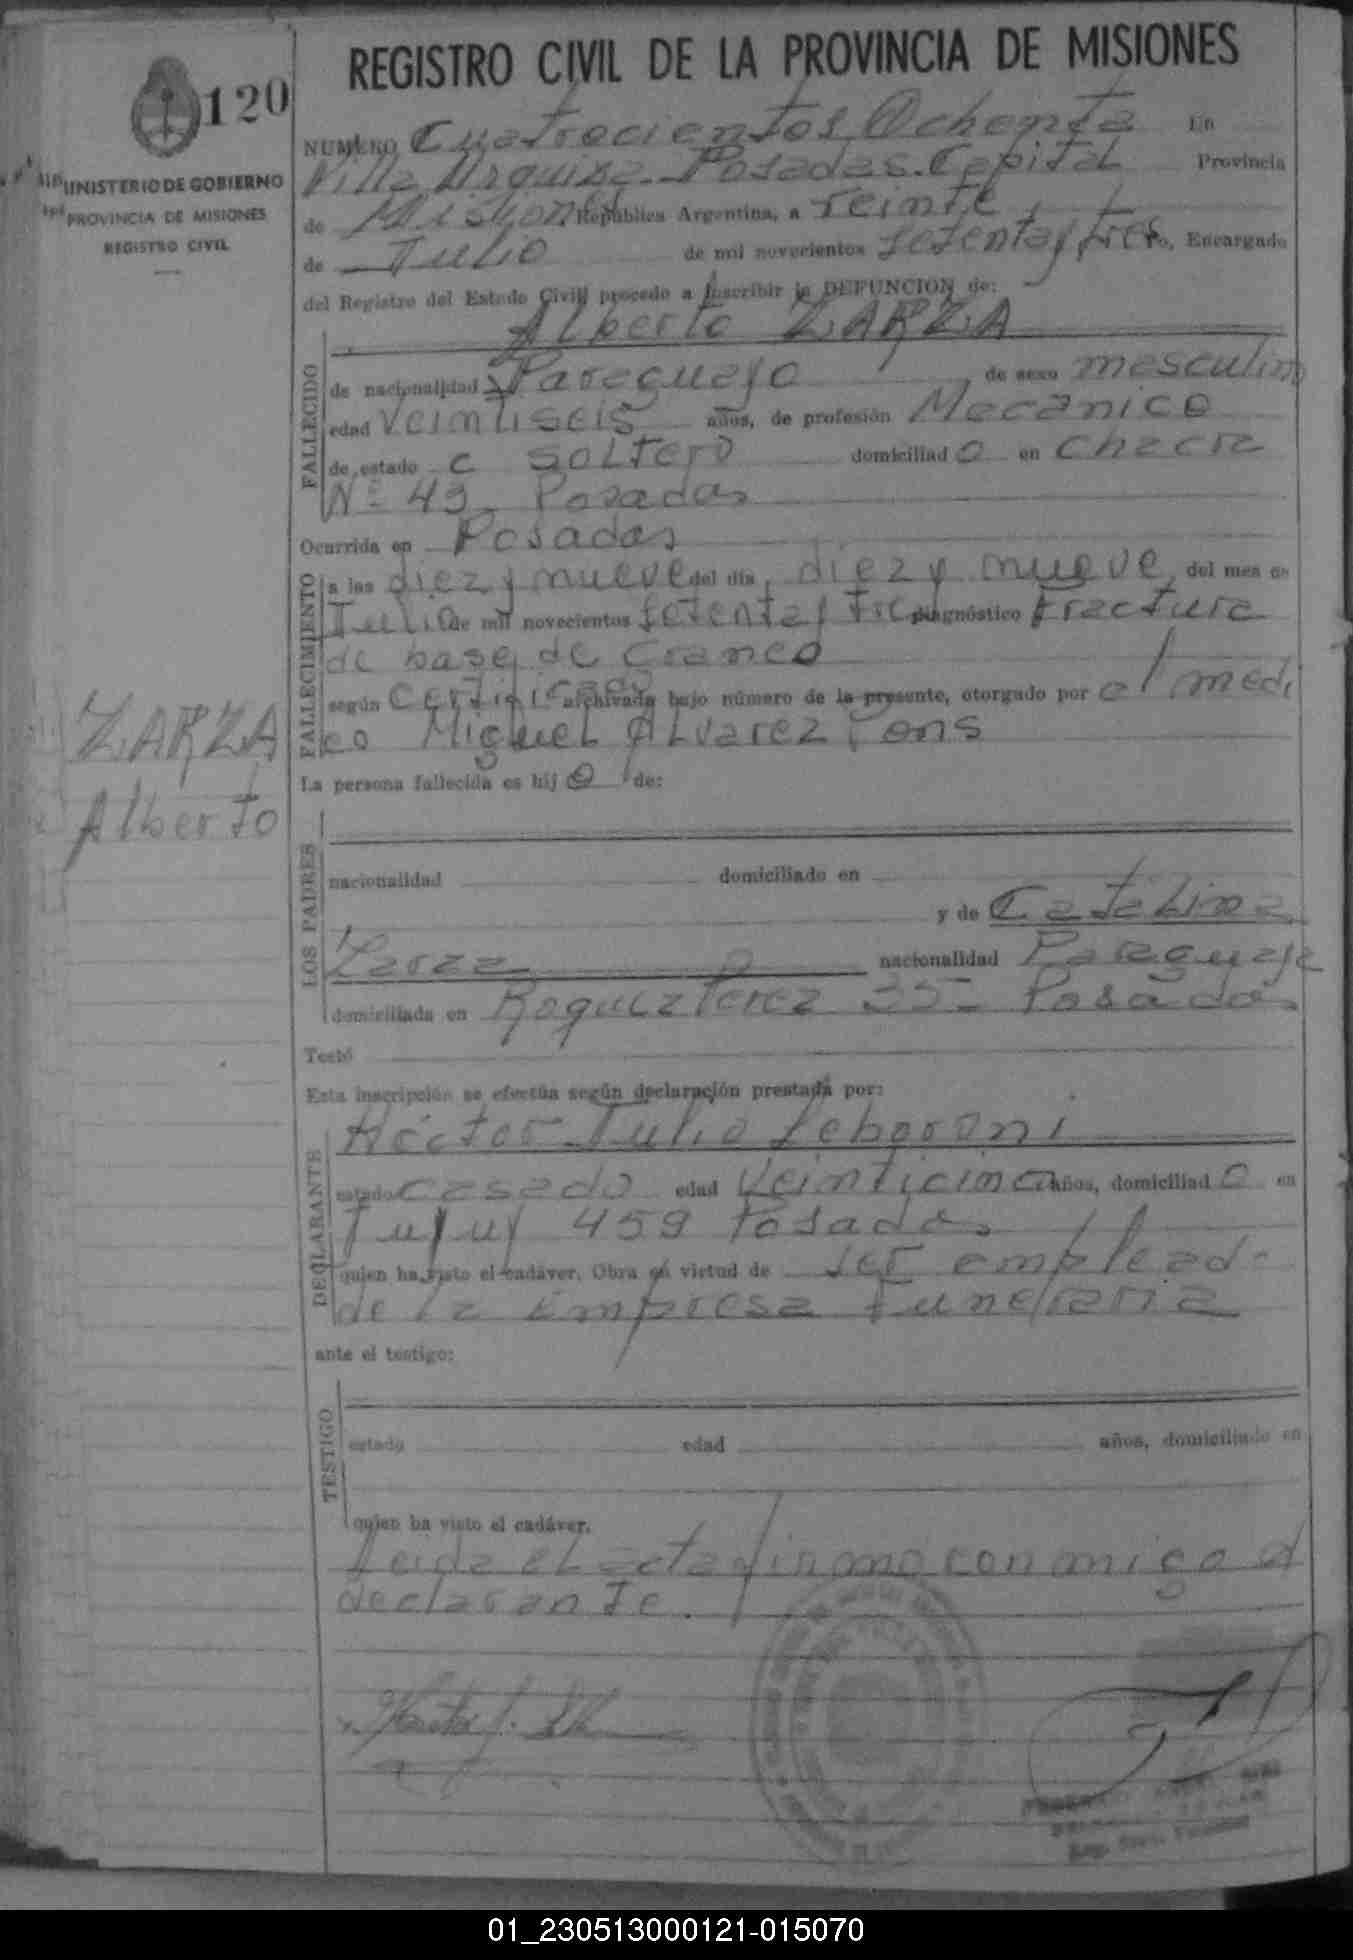 REGISTRO CIVIL DE LA PROVINCIA DE MISIONES
120
MINISTERIO DE GOBIERNO
PROVINCIA DE MISIONES
REGISTRO CIVIL
NUMERO Cuatrocientos Ochenta En
Villa Urquiza - Posadas. Capital Provincia
de Misiones República Argentina, a Veinte
de Julio de mil novecientos setenta y tres Yo, Encargado
del Registro del Estado Civil procedo a inscribir la DEFUNCION de:
Alberto ZARZA
FALLECIDO
de nacionalidad Paraguayo de sexo masculino
edad Veintiseis años, de profesión Mecánico
de estado c soltero domiciliado en Chacra
Nº 49 Posadas
Ocurrida en Posadas
FALLECIMIENTO
a las diez y nueve del día diez y nueve del mes de
Julio de mil novecientos setenta y tres diagnóstico Fractura
de base de craneo
según Certificado archivada bajo número de la presente, otorgado por el medi
co Miguel Alvarez Pons
ZARZA
Alberto
La persona fallecida es hijo de:
LOS PADRES
nacionalidad domiciliado en
y de Catalina
Zarza nacionalidad Paraguaya
domiciliada en Roque Perez 35 - Posadas
Testó
Esta inscripción se efectúa según declaración prestada por:
Héctor Julio
DECLARANTE
estado casado edad Veinticinco años, domiciliado en
Jujuy 459 Posadas
quien ha visto el cadáver. Obra en virtud de ser emplead
de la Empresa Funeraria
ante el testigo:
TESTIGO
estado edad años, domiciliado en
quien ha visto el cadáver.
Leida el acta firma conmigo el
declarante.
01_230513000121-015070